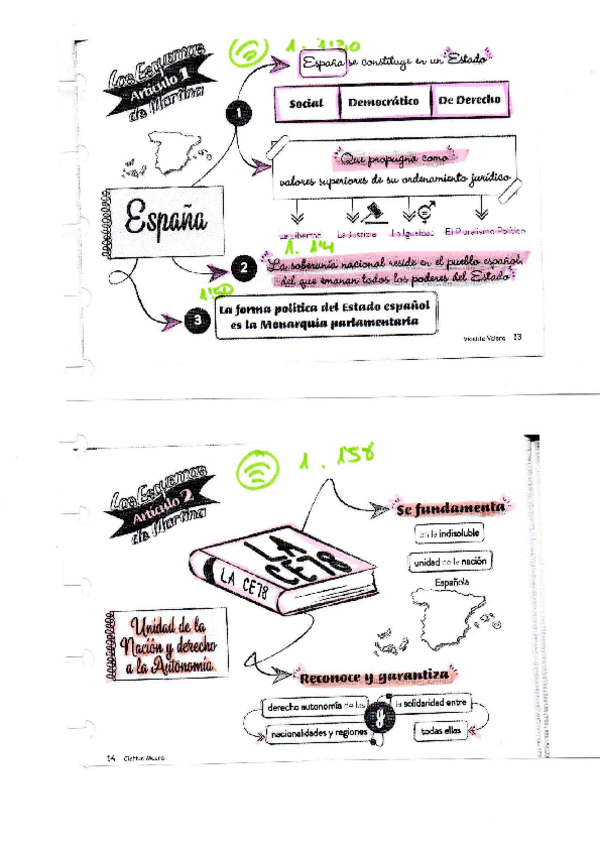 1. 1'30
Los Esquemas
Artículo 1
de Martina
España se constituye en un Estado
1
Social Democrático De Derecho
Que propugna como
valores superiores de su ordenamiento jurídico
España
La Justicia La Igualdad El Pluralismo Político
1. 1'41
2
La soberanía nacional reside en el pueblo español,
del que emanan todos los poderes del Estado
1'50
3
La forma política del Estado español
es la Monarquía parlamentaria
13
1. 158
Los Esquemas
Artículo 2
de Martina
Se fundamenta
en la indisoluble
unidad de la nación
Española
LA CE78
LA CE78
Unidad de la
Nación y derecho
a la Autonomía
Reconoce y garantiza
derecho autonomía de las
nacionalidades y regiones
la solidaridad entre
todas ellas
14